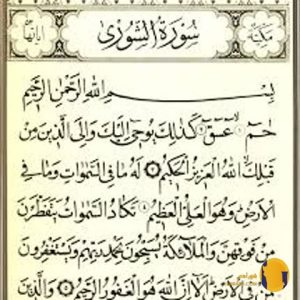 مكية
سورة الشورى
آياتها
بِسْمِ اللهِ الرَّحْمٰنِ الرَّحِيمِ
حٰمۤ ۝ عۤسۤقۤ ۝ كَذٰلِكَ يُوحِي إِلَيْكَ وَإِلَى الَّذِينَ مِنْ
قَبْلِكَ اللهُ الْعَزِيزُ الْحَكِيمُ ۝ لَهُ مَا فِي السَّمٰوَاتِ وَمَا فِي
الْأَرْضِ وَهُوَ الْعَلِيُّ الْعَظِيمُ ۝ تَكَادُ السَّمٰوَاتُ يَتَفَطَّرْنَ
مِنْ فَوْقِهِنَّ وَالْمَلَائِكَةُ يُسَبِّحُونَ بِحَمْدِ رَبِّهِمْ وَيَسْتَغْفِرُونَ
لِمَنْ فِي الْأَرْضِ أَلَا إِنَّ اللهَ هُوَ الْغَفُورُ الرَّحِيمُ ۝ وَالَّذِينَ